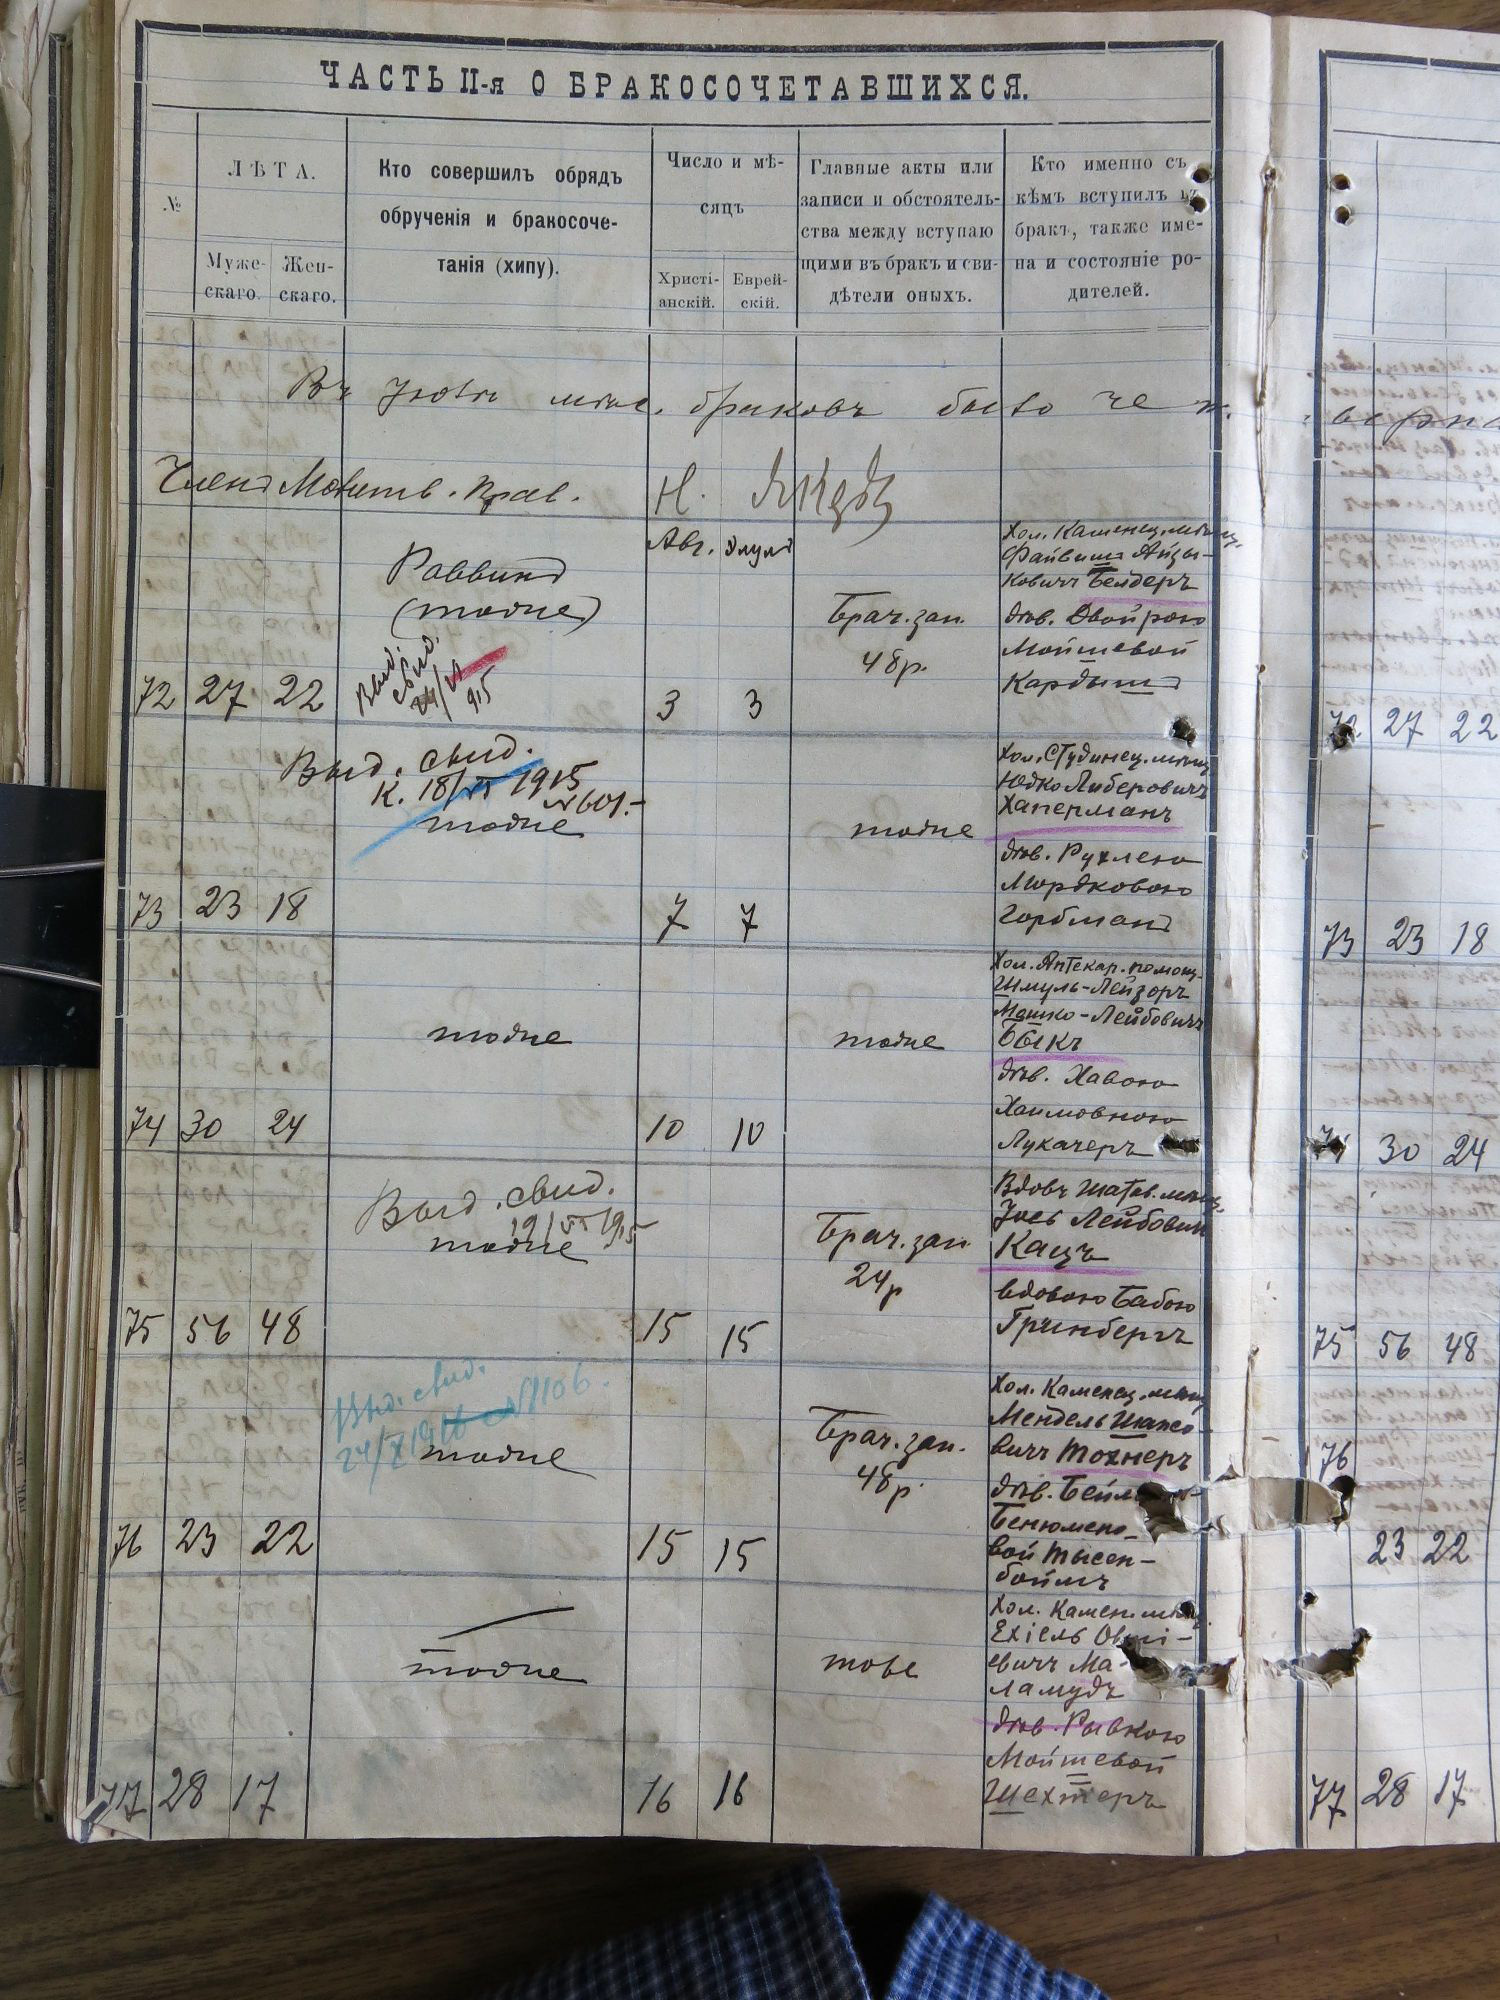 ЧАСТЬ II-я О БРАКОСОЧЕТАВШИХСЯ.
№
ЛѢТА.
Муже-
скаго.
Жен-
скаго.
Кто совершилъ обрядъ
обрученія и бракосоче-
танія (хипу).
Число и мѣ-
сяцъ
Христі-
анскій.
Еврей-
скій.
Главные акты или
записи и обстоятель-
ства между вступаю
щими въ бракъ и сви-
дѣтели оныхъ.
Кто именно съ
кѣмъ вступилъ въ
бракъ, также име-
на и состояніе ро-
дителей.
Въ Іюлѣ мѣс. браковъ было чет.
Членъ Молитв. Прав. Н.
Авг. Элулъ
72 27 22
Раввинъ
(тотже)
Выд.
свид.
3 3
Брач. зап.
48 р.
Хол. Каменец. мѣщ.
Файвишъ Айзы-
ковичъ Белдеръ
дѣв. Двойрою
Мойшевой
Кардышъ
73 23 18
Выд. свид.
К. 18/VI 1915
№ 601.-
тотже
7 7
тотже
Хол. Студинец. мѣщ.
Юдко Либеровичъ
Хаперманъ
дѣв. Рухлею
Мордковою
Горбманъ
74 30 24
тотже
10 10
тотже
Хол. Аптекар. помощ.
Шмуль-Лейзоръ
Мошко-Лейбовичъ
Быкъ
дѣв. Хавою
Хаимовною
Лукачеръ
75 56 48
Выд. свид.
19/VI 1915
тотже
15 15
Брач. зап.
24 р
Вдовъ Шатав. мѣщ.
Іось Лейбович
Кацъ
вдовою Бабою
Гринбергъ
76 23 22
Выд. свид.
24/X 1916 № 1106.
тотже
15 15
Брач. зап.
48 р.
Хол. Каменец. мѣщ
Мендель
вичъ Тохнеръ
дѣв.
Бенюмено-
вой Тысен-
боймъ
77 28 17
тотже
16 16
тоже
Хол. Камен. мѣщ.
Ехіель
евичъ Ма-
ламудъ
дѣв. Рывкою
Мойшевой
Шехтеръ
72 27 22
73 23 18
74 30 24
75 56 48
76
23 22
77 28 17